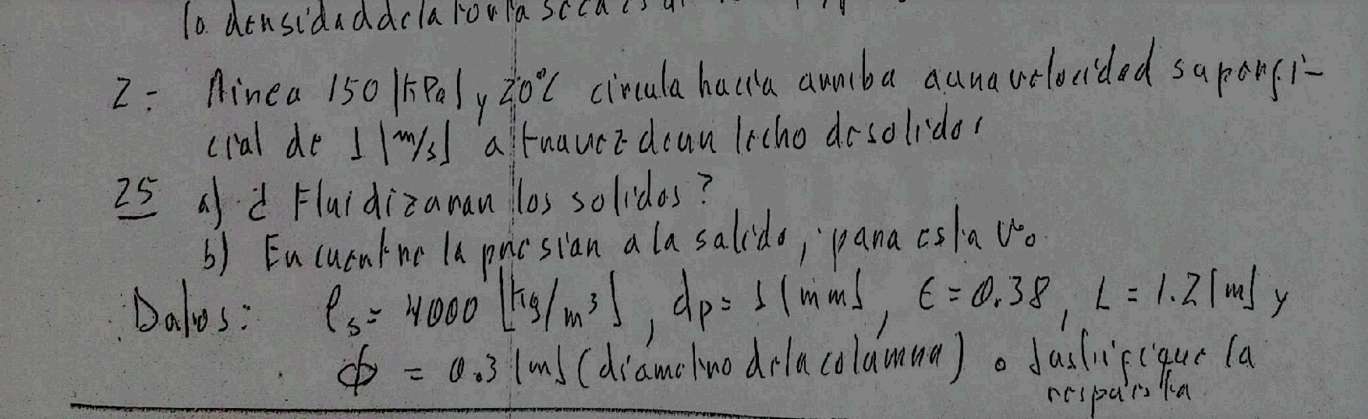 la densidad de la torta seca es
2- Aire a 150 [kPa] y 20°C circula hacia arriba a una velocidad superfi-
cial de 1 [m/s] a travez de un lecho de solidos
25 a) ¿ Fluidizaran los solidos?
b) Encuentre la presian a la salida, para esta Vo.
Datos: ρs= 4000 [kg/m³], dp= 1 [mm], ϵ=0.38, L=1.2[m] y
ϕ = 0.3 [m] (diametro de la columna) . Justifique la
respuesta